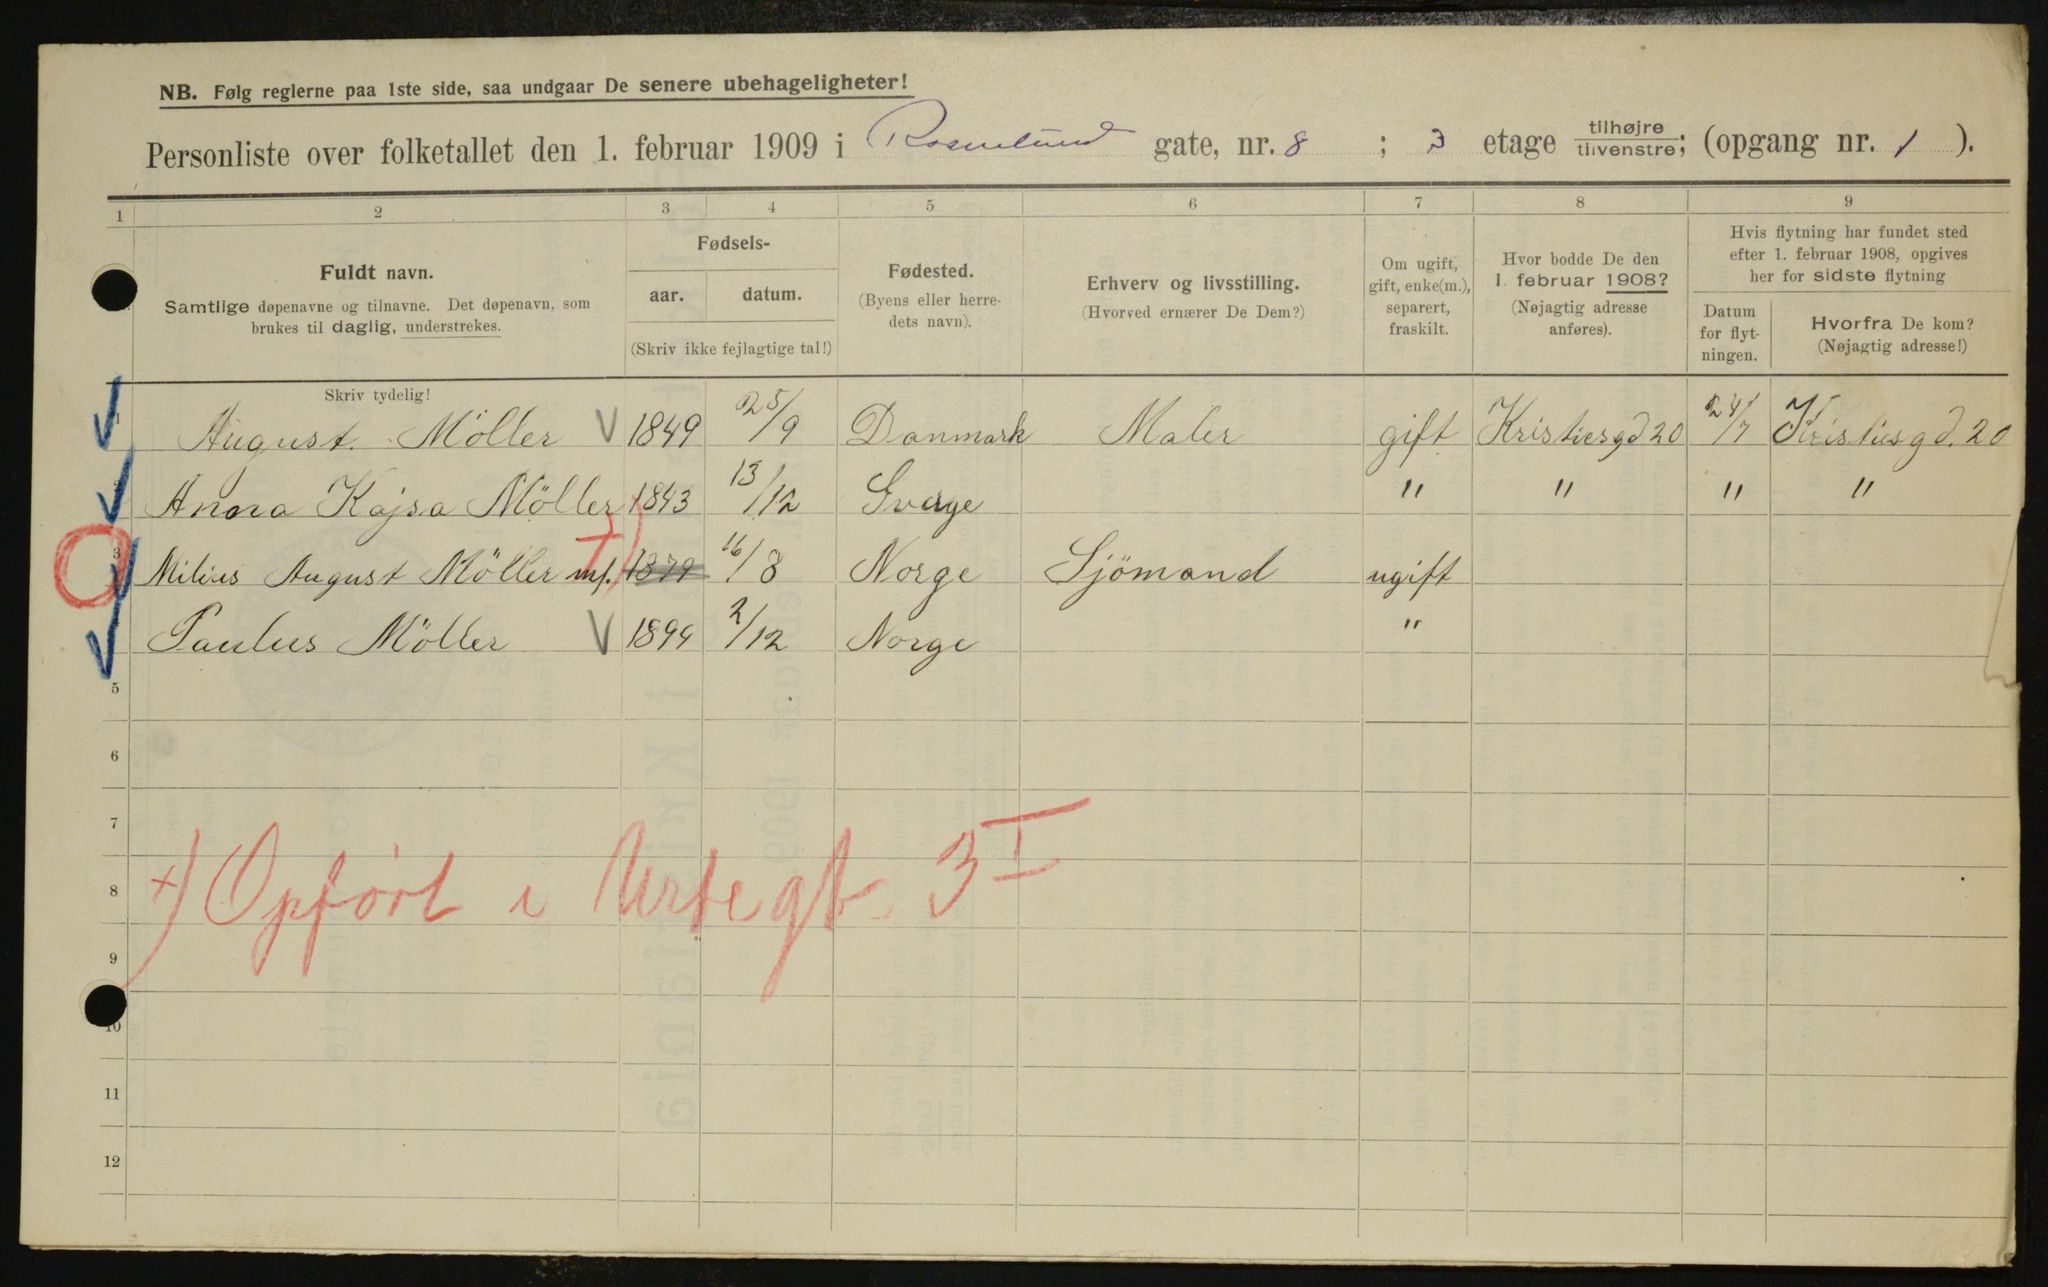 NB. Følg reglerne paa 1ste side, saa undgaar De senere ubehageligheter!
Personliste over folketallet den 1. februar 1909 i Rosenlund gate, nr. 8 ; 3 etage tilhøjre tilvenstre; (opgang nr. 1 ).
1 2 3 4 5 6 7 8 9
Fuldt navn.
Samtlige døpenavne og tilnavne. Det døpenavn, som
brukes til daglig, understrekes.
Skriv tydelig!
Fødsels-
aar. datum.
(Skriv ikke fejlagtige tal!)
Fødested.
(Byens eller herre-
dets navn).
Erhverv og livsstilling.
(Hvorved ernærer De Dem?)
Om ugift,
gift, enke(m.),
separert,
fraskilt.
Hvor bodde De den
1. februar 1908?
(Nøjagtig adresse
anføres).
Hvis flytning har fundet sted
efter 1. februar 1908, opgives
her for sidste flytning
Datum
for flyt-
ningen.
Hvorfra De kom?
(Nøjagtig adresse!)
1 August Möller 1849 25/9 Danmark Maler gift Kristiesgd 20 24/7 Kristiesgd. 20
2 Anna Kajsa Möller 1843 13/12 Sverge " " " "
3 Milius August Möller mf. 1879 16/8 Norge Sjömand ugift
Paulus Möller 1894 2/12 Norge "
5
6
7
8
9
10
11
12
x) Opført i Urtegt. 3 I